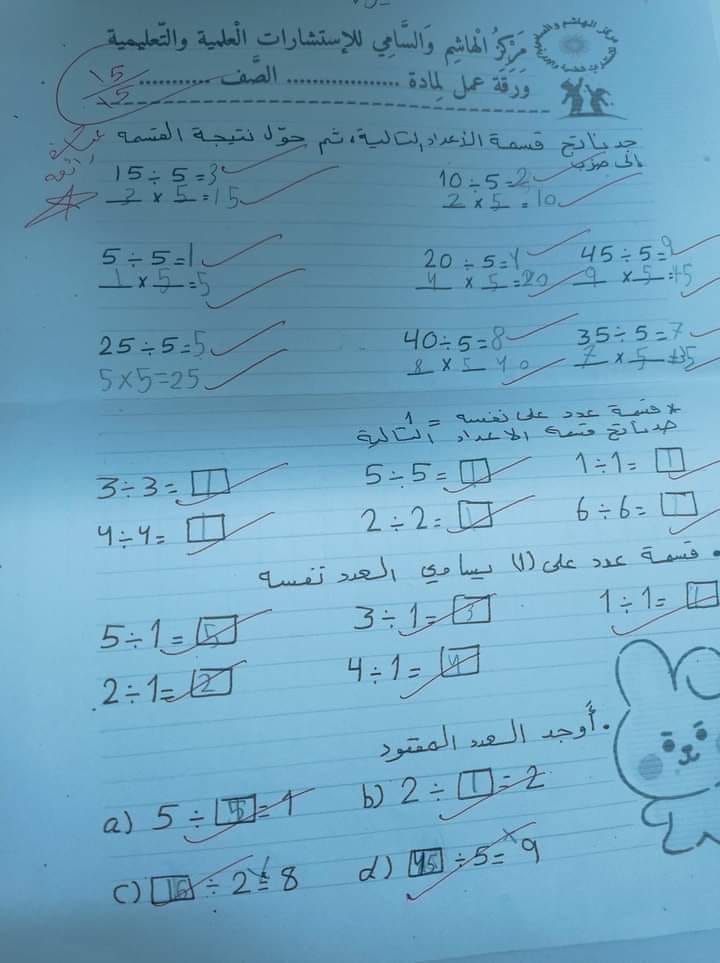 مركز الهاشم والسامي للإستشارات العلمية والتعليمية
ورقة عمل لمادة .................. الصف ............
15
15
جد ناتج قسمة الأعداد التالية، ثم حوّل نتيجة القسمة
إلى ضرب
10÷5=2 15÷5=3
2 × 5 = 10 3 × 5 = 15
45÷5=9 20÷5=4 5÷5=1
9 × 5 = 45 4 × 5 = 20 1 × 5 = 5
35÷5=7 40÷5=8 25÷5=5
7 × 5 = 35 8 × 5 40 5×5=25
* قسمة عدد على نفسه = 1
جد ناتج قسمة الأعداد التالية
1÷1= 1 5÷5= 1 3÷3= 1
6÷6= 1 2÷2= 1 4÷4= 1
• قسمة عدد على (1) يساوي العدد نفسه
1÷1= 1 3÷1= 3 5÷1= 5
4÷1= 4 2÷1= 2
• أوجد العدد المفقود
a) 5 ÷ 5 = 1 b) 2 ÷ 1 = 2
c) 16 ÷ 2 = 8 d) 45 ÷ 5 = 9